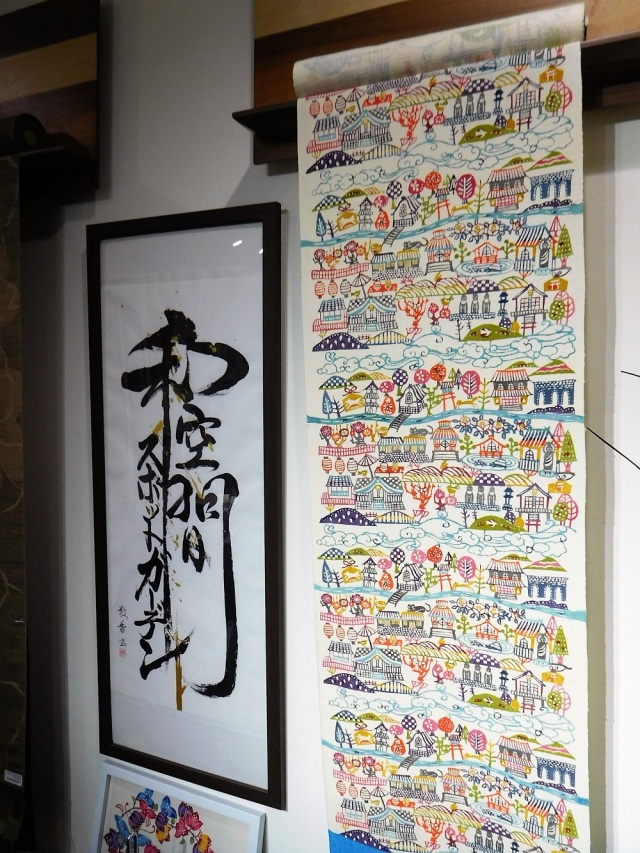 和空間
スポットガーデン